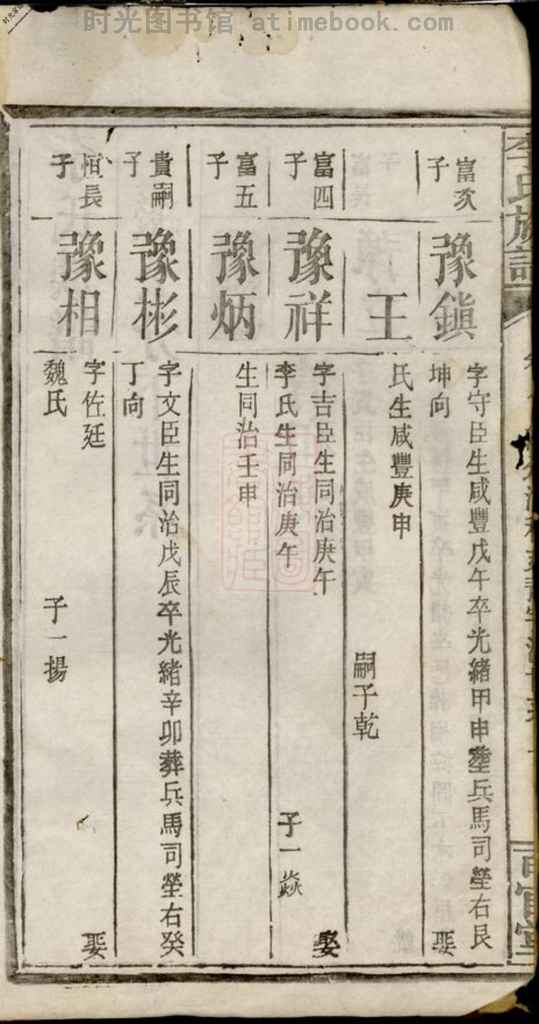 时光图书馆 - atimebook.com -
李氏族譜
富次子
豫鎮
字守臣生咸豐戊午卒光緒甲申塟兵馬司塋右艮
坤向 娶
王
氏生咸豐庚申 嗣子乾
富四子
豫祥
字吉臣生同治庚午 娶
李氏生同治庚午 子一焱
富五子
豫炳
生同治壬申
貴嗣子
豫彬
字文臣生同治戊辰卒光緒辛卯葬兵馬司塋右癸
丁向
恒長子
豫相
字佐廷 娶
魏氏 子一揚